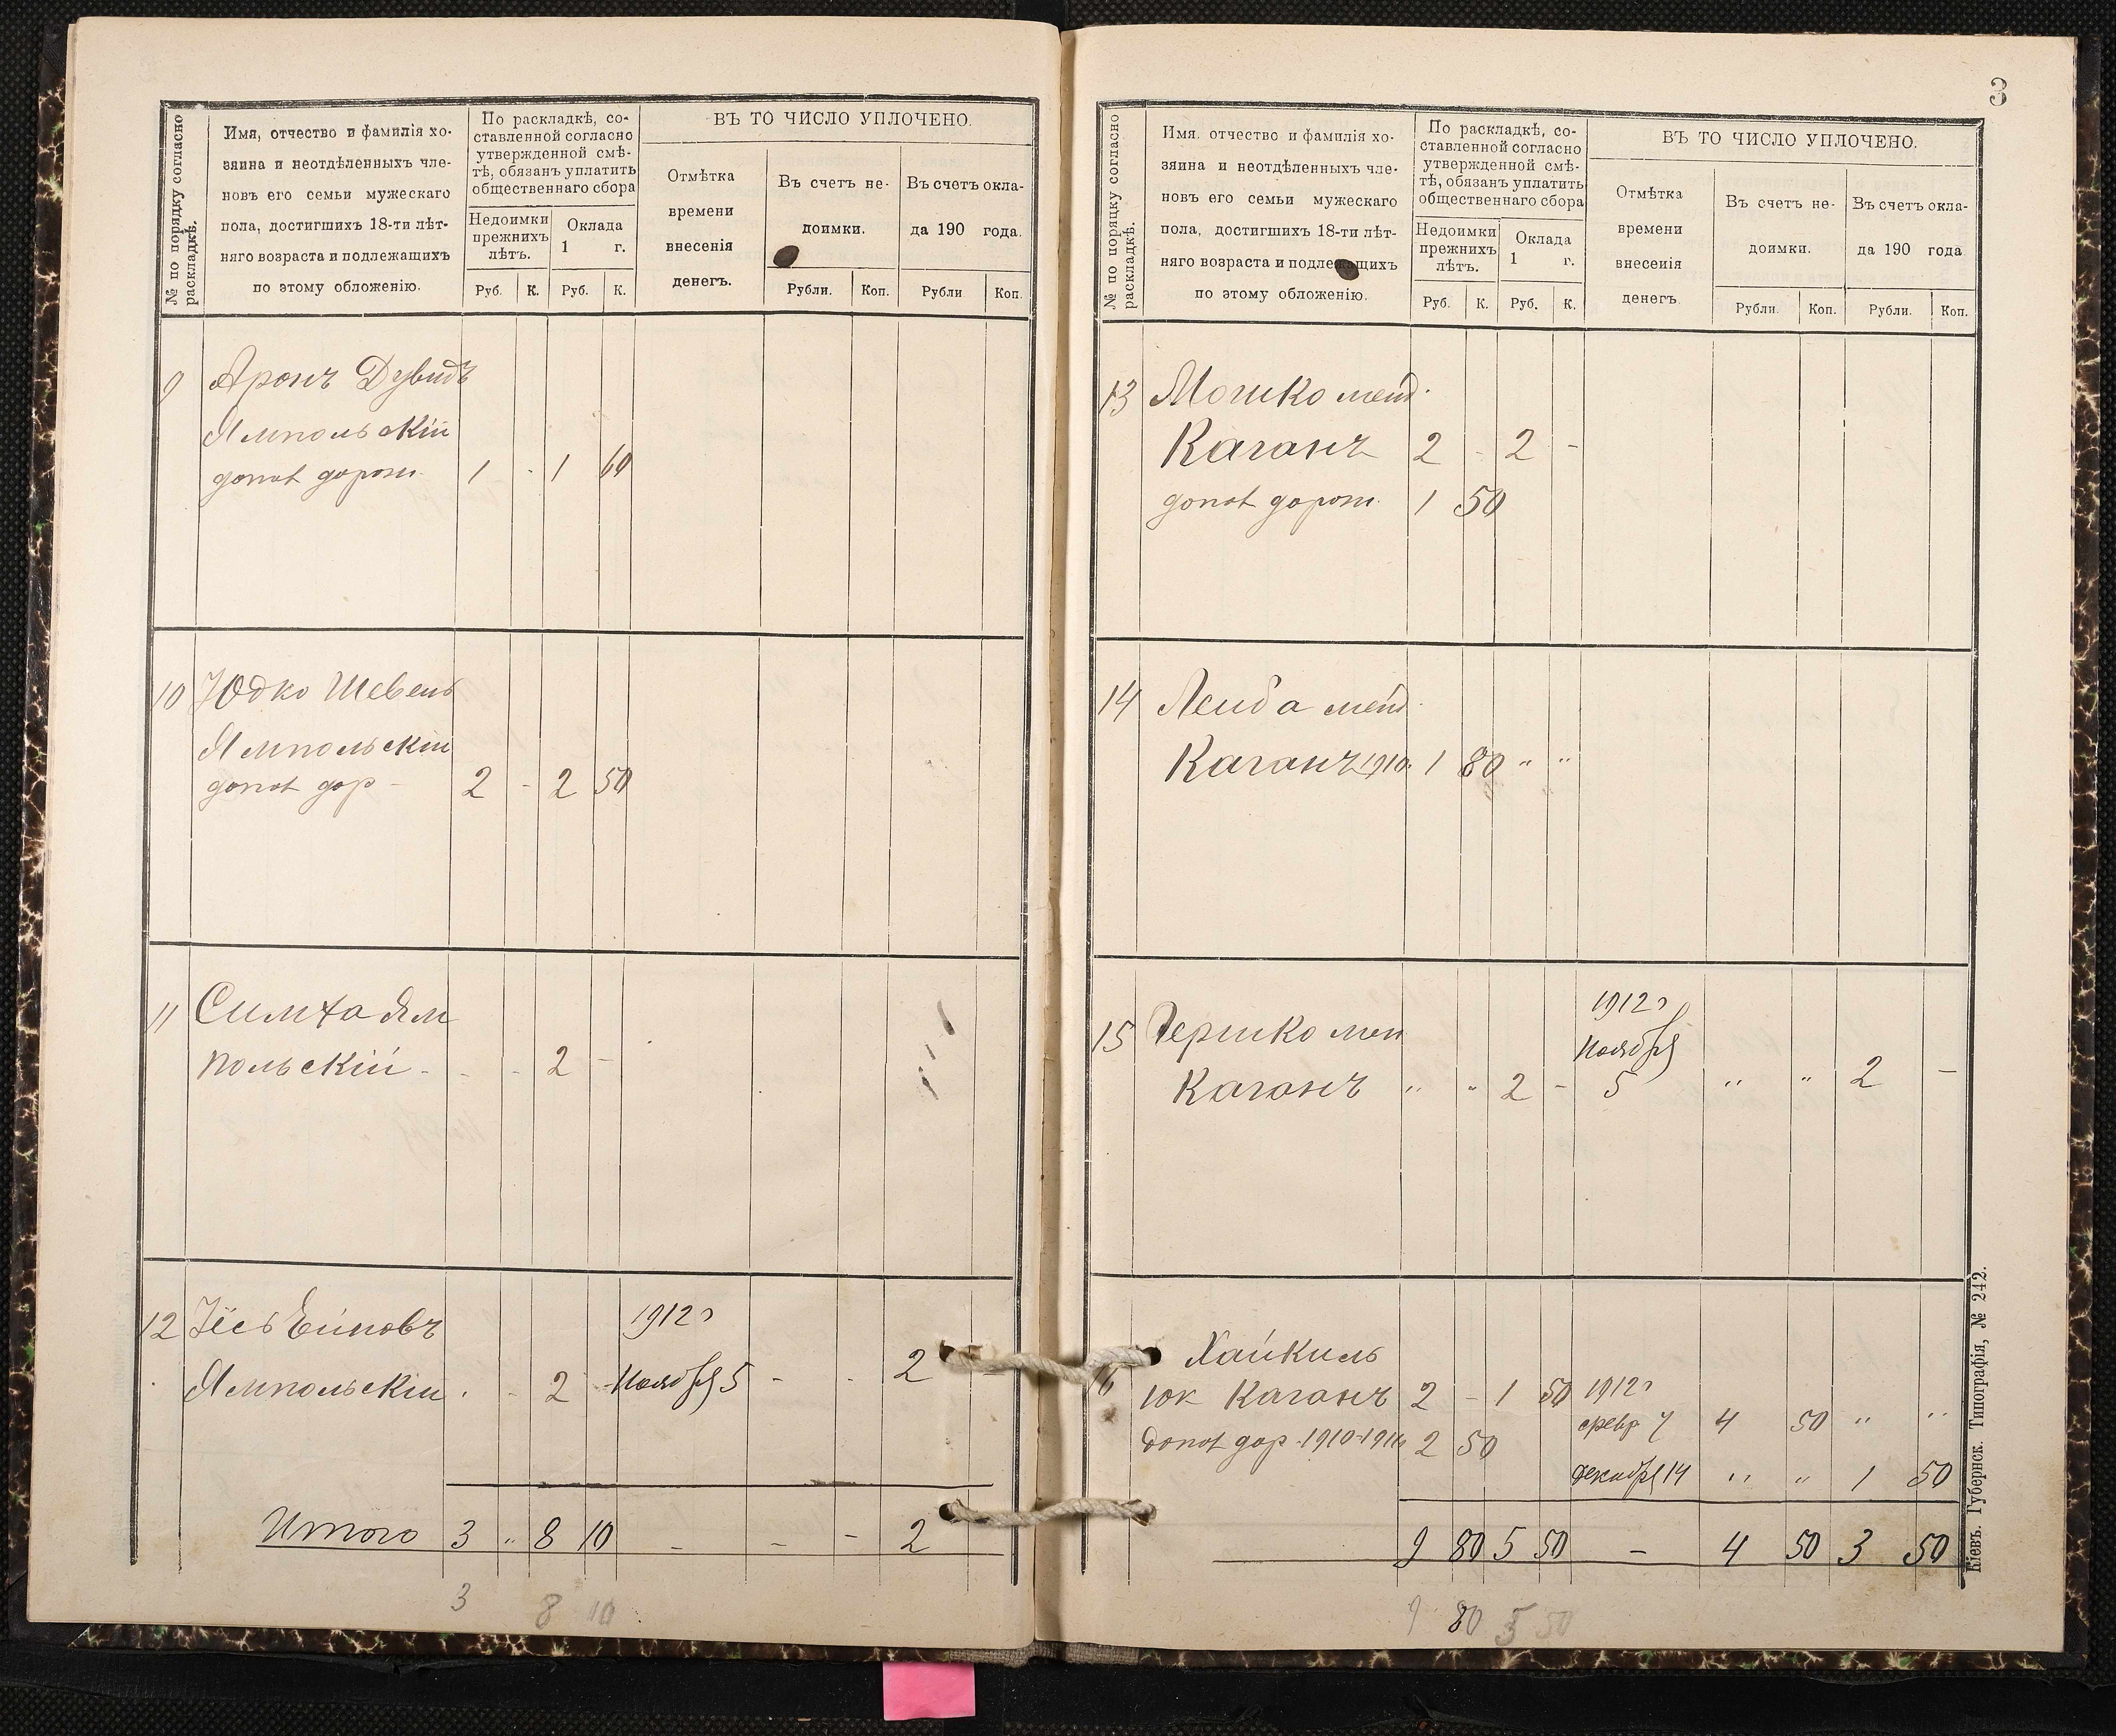 3
№ по порядку согласно раскладкѣ.
Имя, отчество и фамилія хо-
зяина и неотдѣленныхъ чле-
новъ его семьи мужескаго
пола, достигшихъ 18-ти лѣт-
няго возраста и подлежащихъ
по этому обложенію.
По раскладкѣ, со-
ставленной согласно
утвержденной смѣ-
тѣ, обязанъ уплатить
общественнаго сбора
Недоимки
прежнихъ
лѣтъ.
Оклада
1 г.
Руб. К. Руб. К.
ВЪ ТО ЧИСЛО УПЛОЧЕНО.
Отмѣтка
времени
внесенія
денегъ.
Въ счетъ не-
доимки.
Въ счетъ окла-
да 190 года.
Рубли. Коп. Рубли Коп.
9 Аронъ Дувидъ
Ямпольскій
допол дорож. 1 - 1 60
10 Юдко Шевель
Ямпольскій
допол дор - 2 - 2 50
11 Симха Ям
польскій - - - 2 -
12 Іось Ейновъ 1912 г
Ямпольскій - - 2 - Ноября 5 - - 2
Итого 3 " 8 10 - - - 2
3 8 10
№ по порядку согласно раскладкѣ.
Имя, отчество и фамилія хо-
зяина и неотдѣленныхъ чле-
новъ его семьи мужескаго
пола, достигшихъ 18-ти лѣт-
няго возраста и подлежащихъ
по этому обложенію.
По раскладкѣ, со-
ставленной согласно
утвержденной смѣ-
тѣ, обязанъ уплатить
общественнаго сбора
Недоимки
прежнихъ
лѣтъ.
Оклада
1 г.
Руб. К. Руб. К.
ВЪ ТО ЧИСЛО УПЛОЧЕНО.
Отмѣтка
времени
внесенія
денегъ.
Въ счетъ не-
доимки.
Въ счетъ окла-
да 190 года
Рубли. Коп. Рубли. Коп.
13 Мошко менд.
Каганъ 2 - 2 -
допол дорож. 1 50
14 Лейба менд.
Каганъ 1910. 1 80 " "
15 Гершко мен 1912 г
Ноября
Каганъ " " 2 - 5 " " 2 -
16 Хайкиль
юк Каганъ 2 - 1 50 1912 г
февр 7 4 50 " "
допол дор. 1910-1911 2 50
Декабря 14 " " 1 50
9 80 5 50 - 4 50 3 50
9 80 5 50
Кіевъ. Губернск. Типографія, № 242.